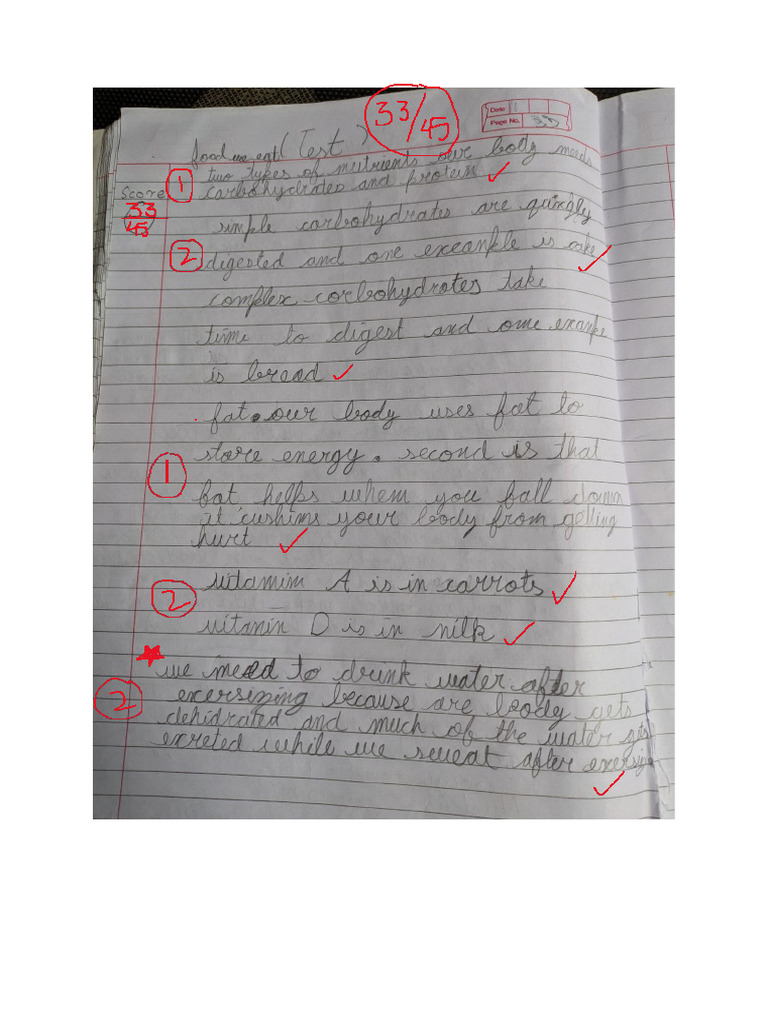 33/45
Date
Page No.
food we eat (Test)
Score
33
45
1 two types of nutrients our body needs
carbohydrates and protein
simple carbohydrates are quingly
2 digested and one exeanple is cake
complex carbohydrates take
time to digest and one exanple
is bread
fat. our body uses fat to
store energy. second is that
1
fat helps when you fall down
it cushins your body from getting
hurt
vitamin A is in carrots
2
vitanin D is in nilk
we need to drink water after
2 exersizing because are body gets
dehidrated and much of the water gets
excreted while we seweat after exersize